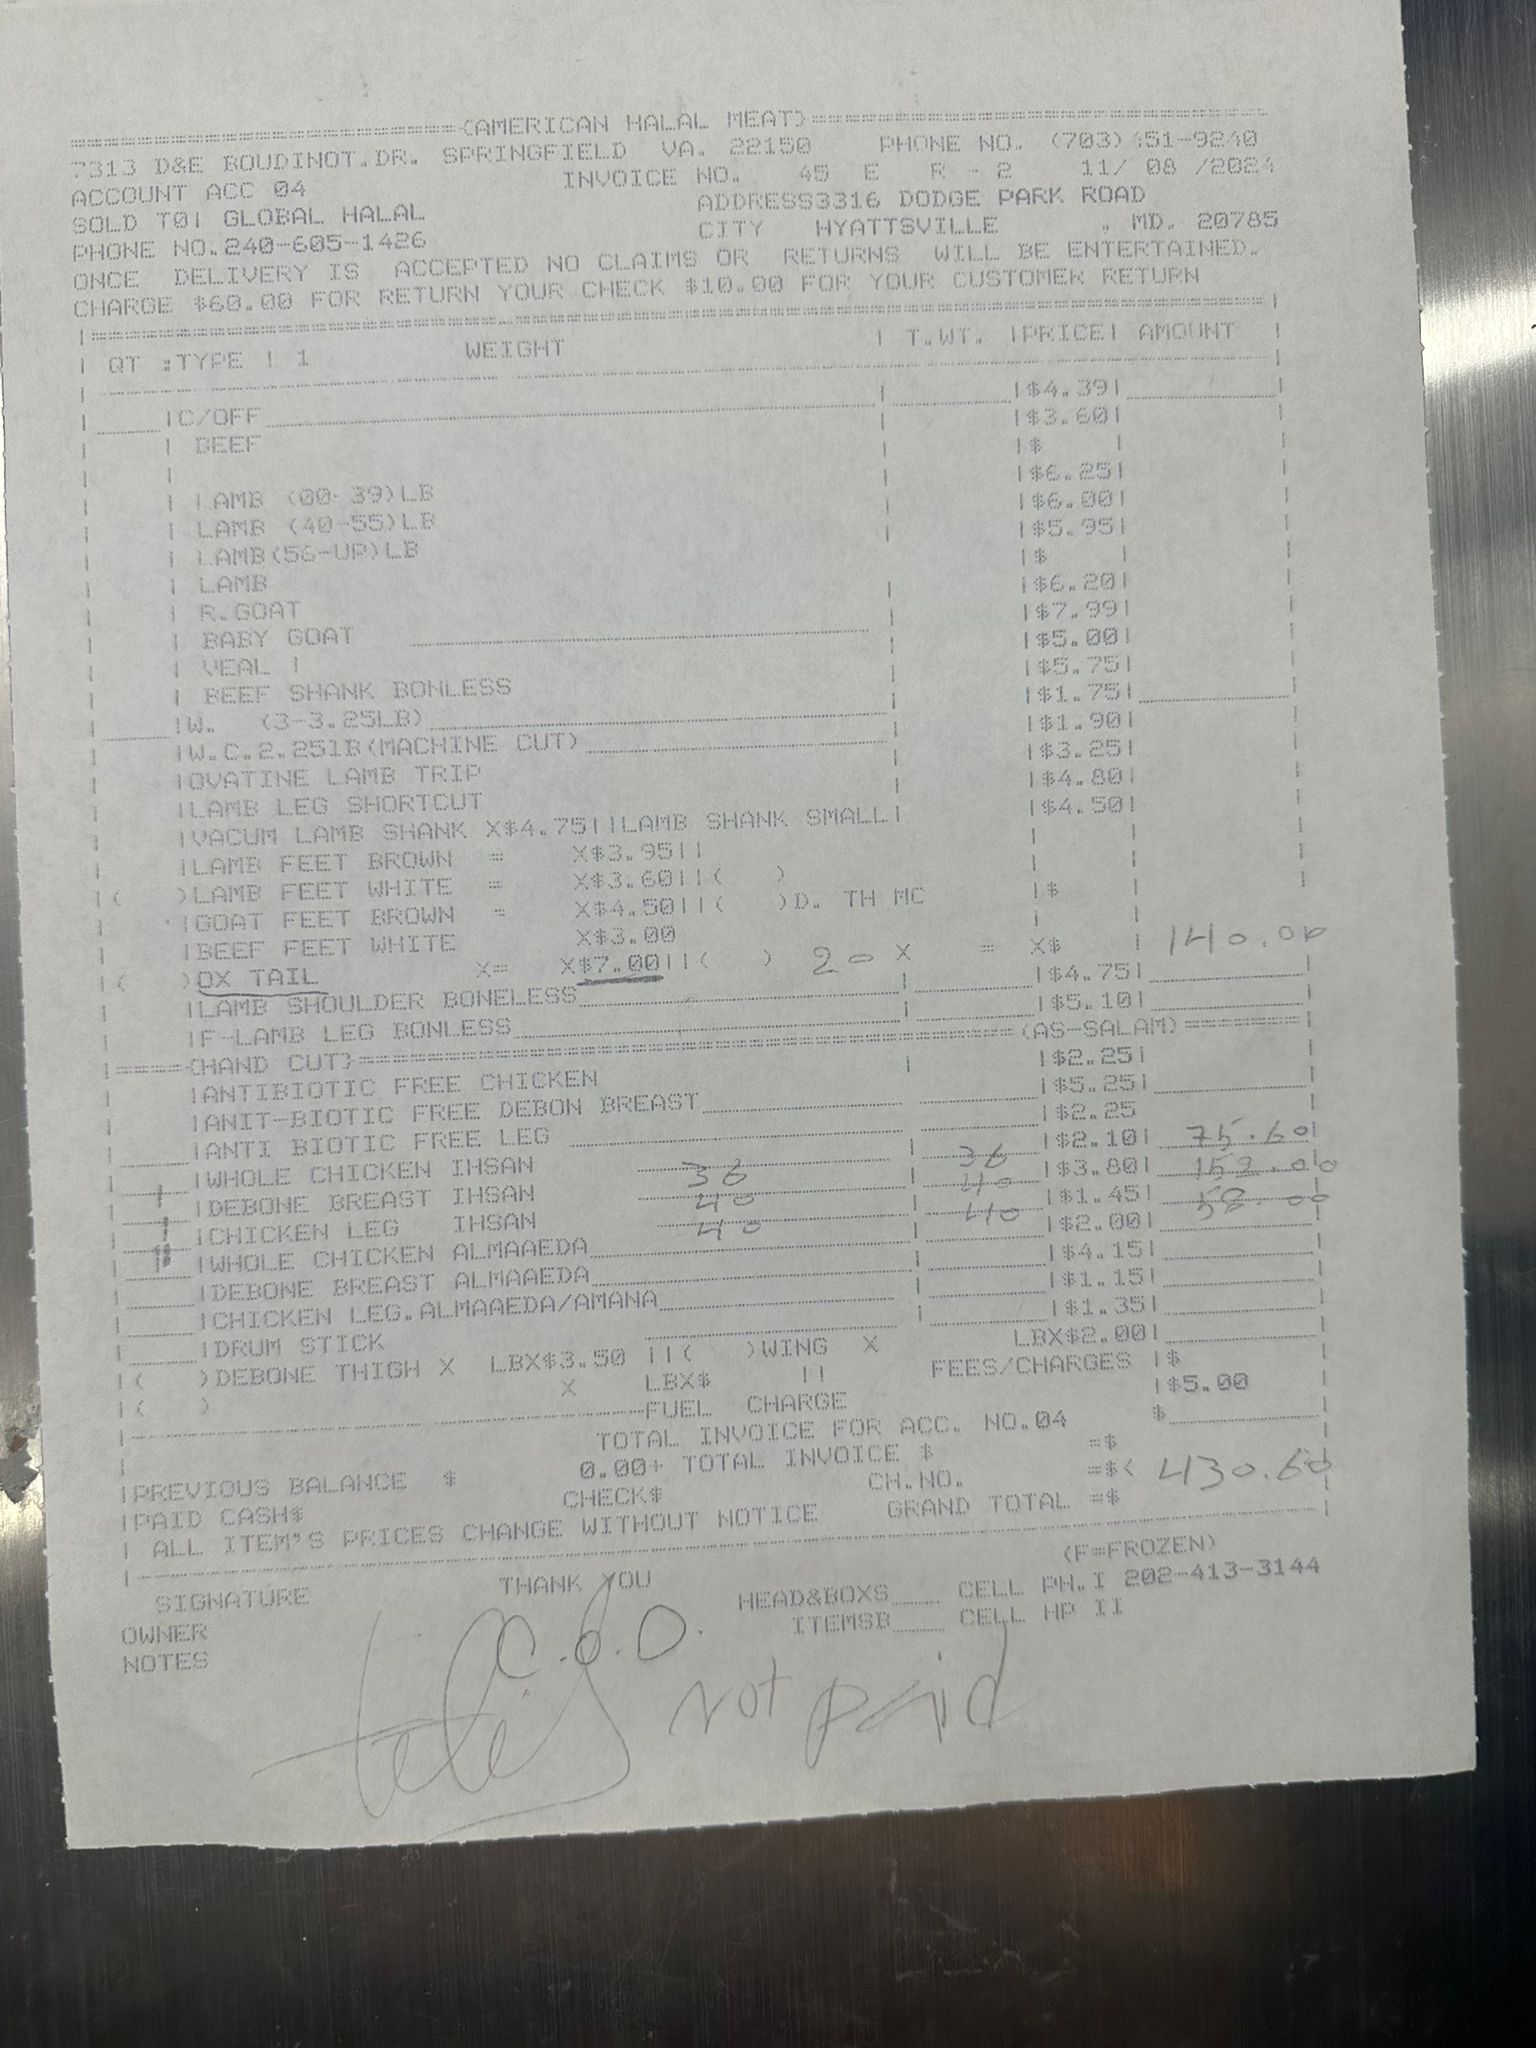 =========================(AMERICAN HALAL MEAT)==============================
7313 D&E BOUDINOT.DR. SPRINGFIELD VA. 22150 PHONE NO. (703)451-9240
ACCOUNT ACC 04 INVOICE NO. 45 E R - 2 11/ 08 /2024
SOLD TO| GLOBAL HALAL ADDRESS3316 DODGE PARK ROAD
PHONE NO.240-605-1426 CITY HYATTSVILLE . MD. 20785
ONCE DELIVERY IS ACCEPTED NO CLAIMS OR RETURNS WILL BE ENTERTAINED.
CHARGE $60.00 FOR RETURN YOUR CHECK $10.00 FOR YOUR CUSTOMER RETURN
| QT :TYPE | 1 WEIGHT | T.WT. |PRICE| AMOUNT |
|C/OFF |$4.39|
| BEEF |$3.60|
| |$ |
| LAMB (00-39)LB |$6.25|
| LAMB (40-55)LB |$6.00|
| LAMB(56-UP)LB |$5.95|
| LAMB |$ |
| R.GOAT |$6.20|
| BABY GOAT |$7.99|
| VEAL | |$5.00|
| BEEF SHANK BONLESS |$5.75|
|W. (3-3.25LB) |$1.75|
|W.C.2.25lB(MACHINE CUT) |$1.90|
|OVATINE LAMB TRIP |$3.25|
|LAMB LEG SHORTCUT |$4.80|
|VACUM LAMB SHANK X$4.75||LAMB SHANK SMALL| |$4.50|
|LAMB FEET BROWN = X$3.95||
|( )LAMB FEET WHITE = X$3.60||( )
|GOAT FEET BROWN = X$4.50||( )D. TH MC |$
|BEEF FEET WHITE X$3.00
|( )OX TAIL X= X$7.00||( ) 20 X = X$ | 140.00
|LAMB SHOULDER BONELESS |$4.75|
|F-LAMB LEG BONLESS |$5.10|
|=====(HAND CUT)==========================================(AS-SALAM)=======
|ANTIBIOTIC FREE CHICKEN |$2.25|
|ANIT-BIOTIC FREE DEBON BREAST |$5.25|
|ANTI BIOTIC FREE LEG |$2.25
|WHOLE CHICKEN IHSAN 36 36 |$2.10| 75.60|
|DEBONE BREAST IHSAN 40 40 |$3.80| 152.00
|CHICKEN LEG IHSAN 40 40 |$1.45| 58.00
|WHOLE CHICKEN ALMAAEDA |$2.00|
|DEBONE BREAST ALMAAEDA |$4.15|
|CHICKEN LEG.ALMAAEDA/AMANA |$1.15|
|DRUM STICK |$1.35|
|( )DEBONE THIGH X LBX$3.50 ||( )WING X LBX$2.00|
|( ) X LBX$ || FEES/CHARGES |$
FUEL CHARGE |$5.00
TOTAL INVOICE FOR ACC. NO.04 $
|PREVIOUS BALANCE $ 0.00+ TOTAL INVOICE $ =$
|PAID CASH$ CHECK$ CH.NO. =$< 430.60
| ALL ITEM'S PRICES CHANGE WITHOUT NOTICE GRAND TOTAL =$
(F=FROZEN)
SIGNATURE THANK YOU HEAD&BOXS____ CELL PH.I 202-413-3144
OWNER ITEMSB____ CELL HP II
NOTES
C.O.D.
not paid